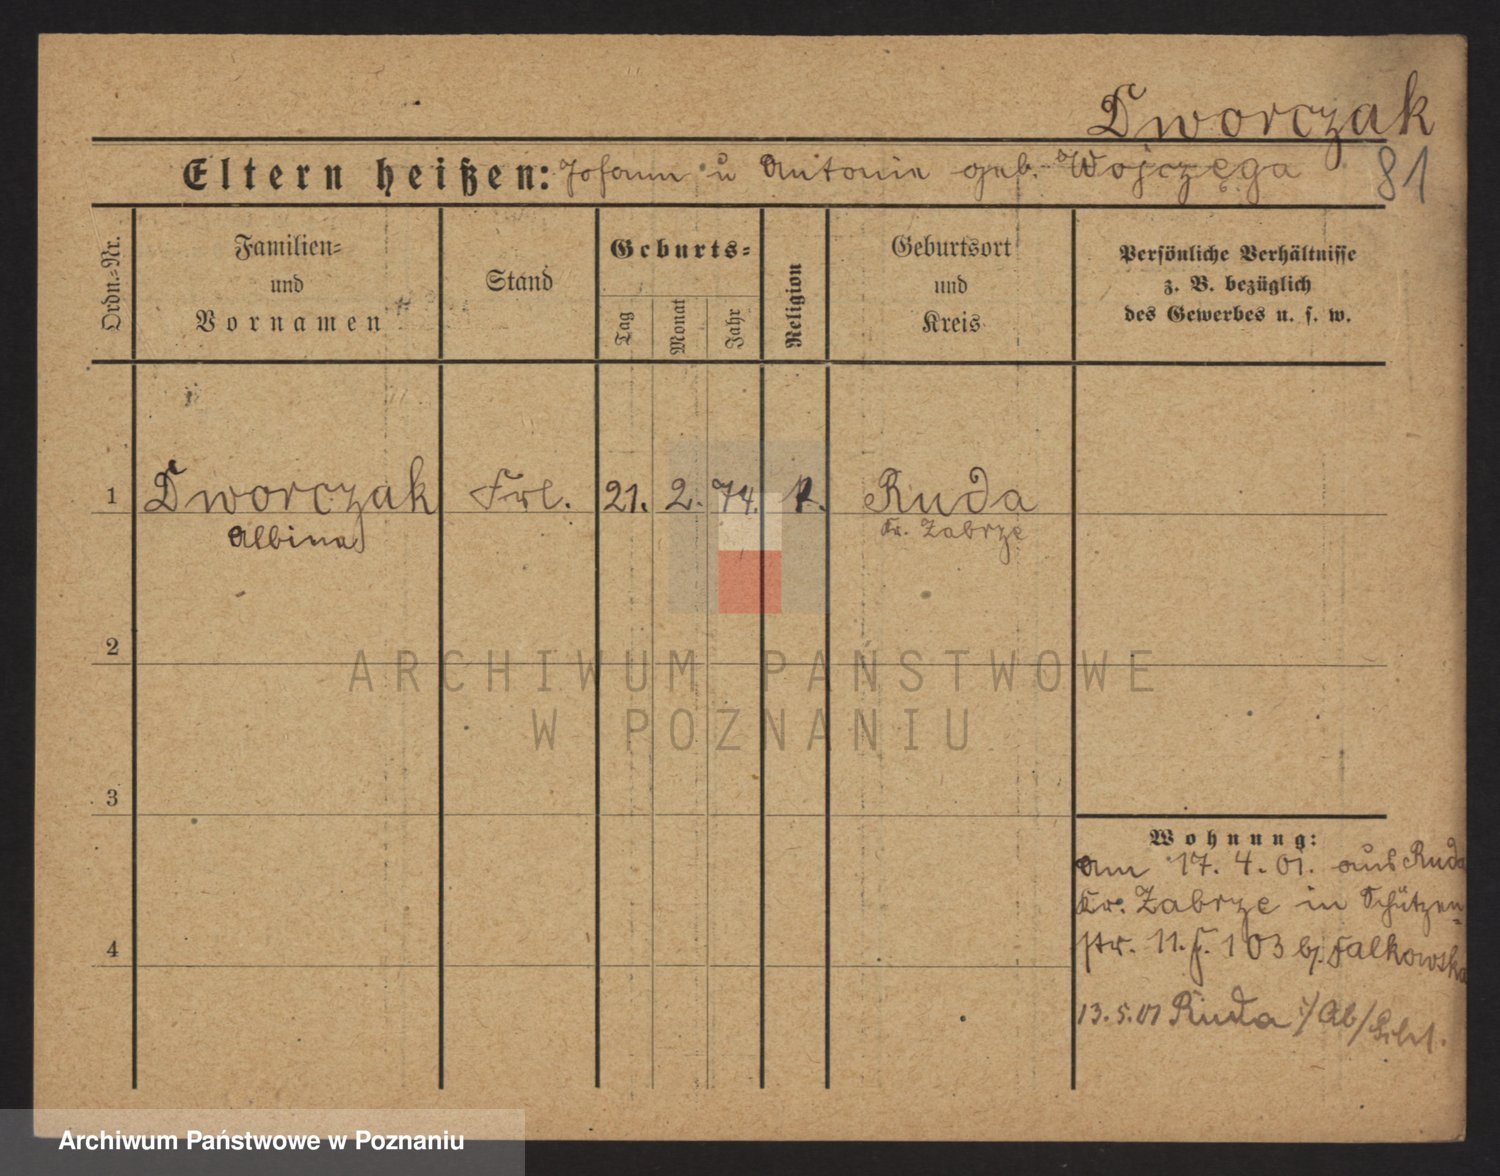 Dworczak
Eltern heißen: Johann u Antonie geb. Wojczęga 81
Ordn.=Nr.
Familien=
und
Vornamen
Stand
Geburts=
Tag
Monat
Jahr
Religion
Geburtsort
und
Kreis
Persönliche Verhältnisse
z. B. bezüglich
des Gewerbes u. s. w.
1 Dworczak Frl. 21. 2. 74. k. Ruda
Albina Kr. Zabrze
2
ARCHIWUM PAŃSTWOWE
W POZNANIU
3
Wohnung:
am 17. 4. 01. aus Ruda
Kr. Zabrze in Schützen=
str. 11. 103 b. Falkowska
4
13.5.01 Ruda
Archiwum Państwowe w Poznaniu